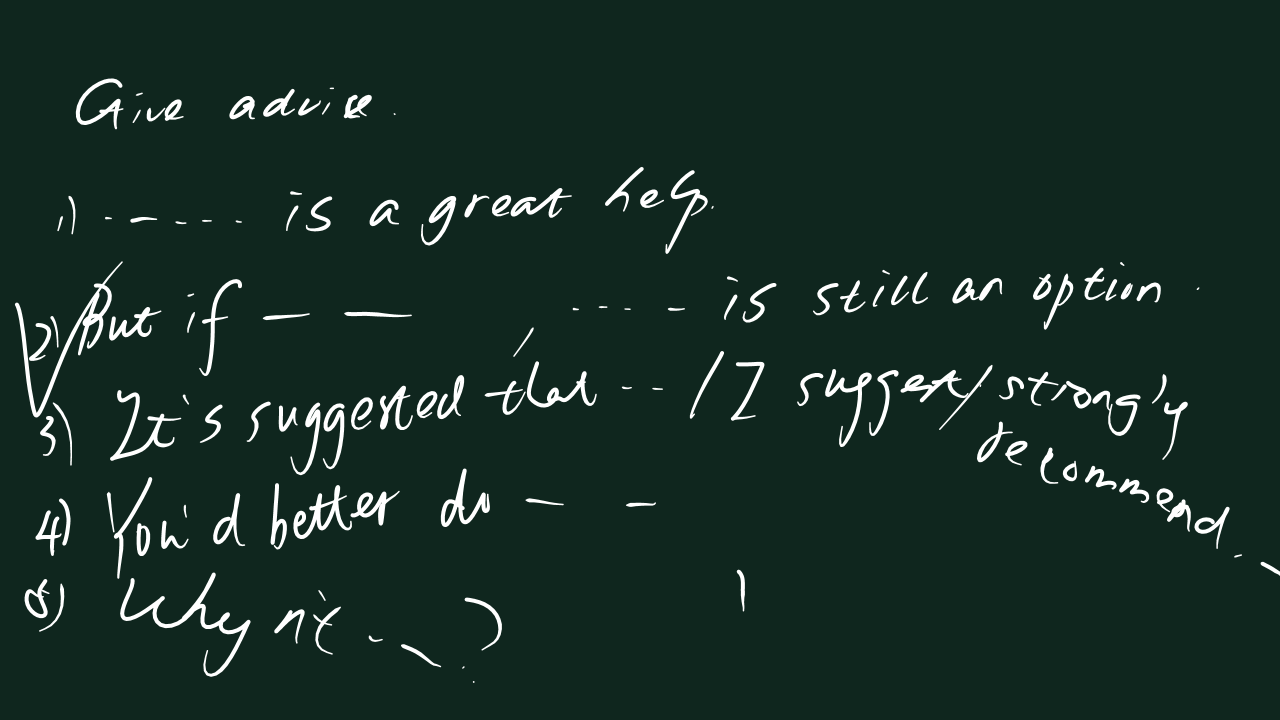 Give advise.
1) ------ is a great help.
2) But if — — , ---- is still an option.
3) It's suggested that --- / I suggest/strongly
recommend.
4) You'd better do — —
5) Why n't --- ?